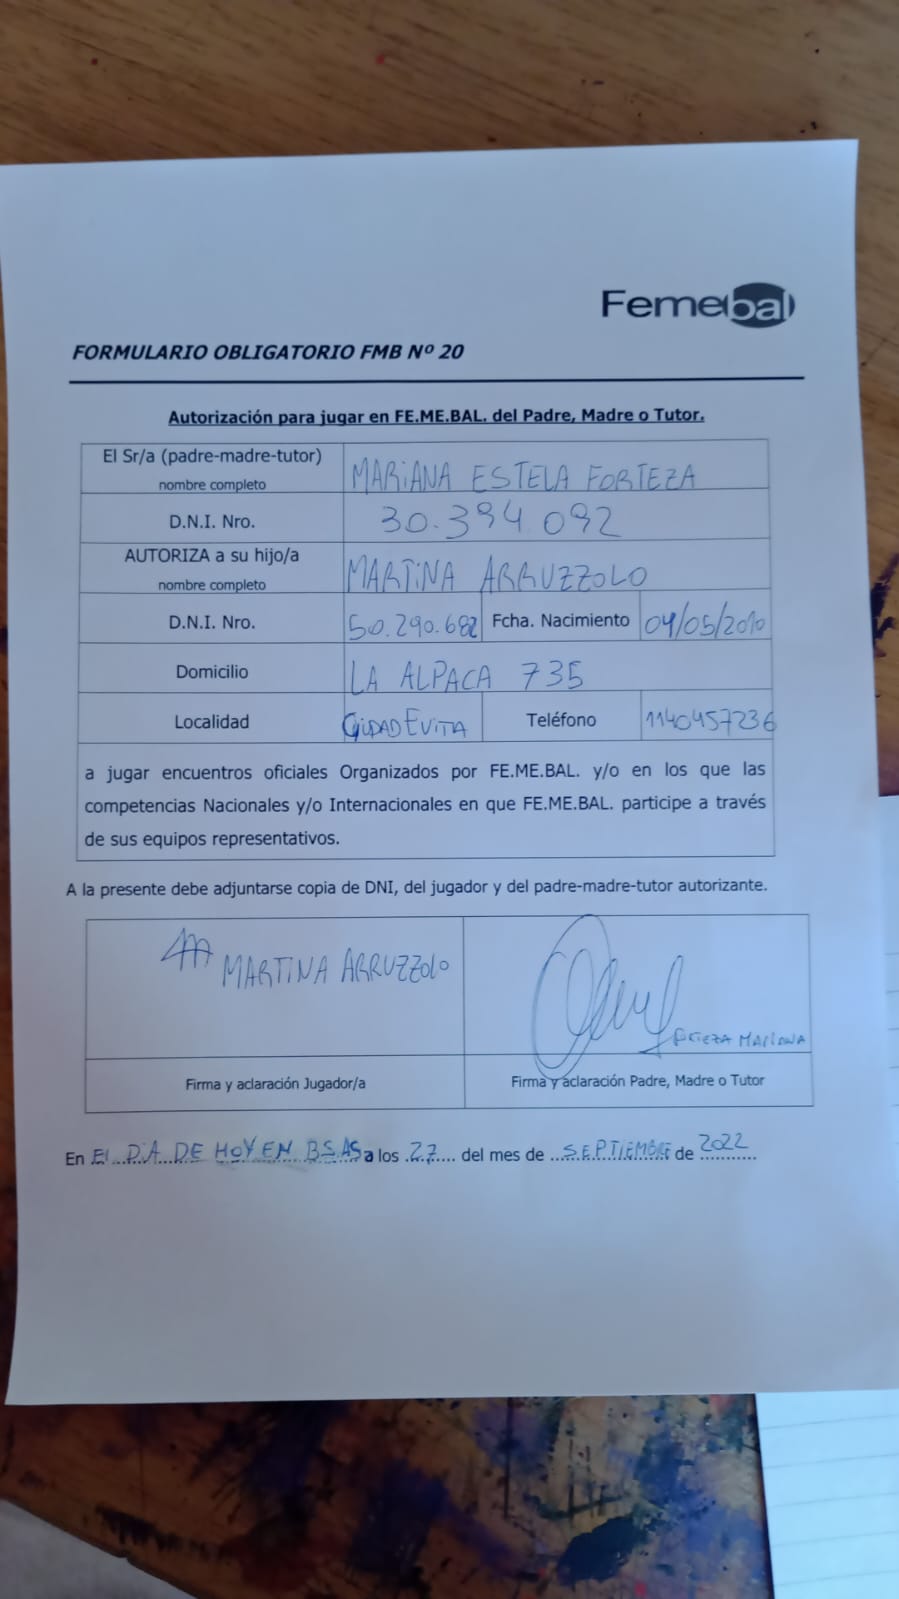 Femebal
FORMULARIO OBLIGATORIO FMB Nº 20
Autorización para jugar en FE.ME.BAL. del Padre, Madre o Tutor.
El Sr/a (padre-madre-tutor)
nombre completo
MARIANA ESTELA FORTEZA
D.N.I. Nro.
30.394.092
AUTORIZA a su hijo/a
nombre completo
MARTINA ARRUZZOLO
D.N.I. Nro. 50.290.682 Fcha. Nacimiento 04/05/2010
Domicilio LA ALPACA 735
Localidad CIUDAD EVITA Teléfono 1140457236
a jugar encuentros oficiales Organizados por FE.ME.BAL. y/o en los que las
competencias Nacionales y/o Internacionales en que FE.ME.BAL. participe a través
de sus equipos representativos.
A la presente debe adjuntarse copia de DNI, del jugador y del padre-madre-tutor autorizante.
MARTINA ARRUZZOLO
FORTEZA MARIANA
Firma y aclaración Jugador/a Firma y aclaración Padre, Madre o Tutor
En El DIA DE HOY EN BS AS a los 27 del mes de SEPTIEMBRE de 2022